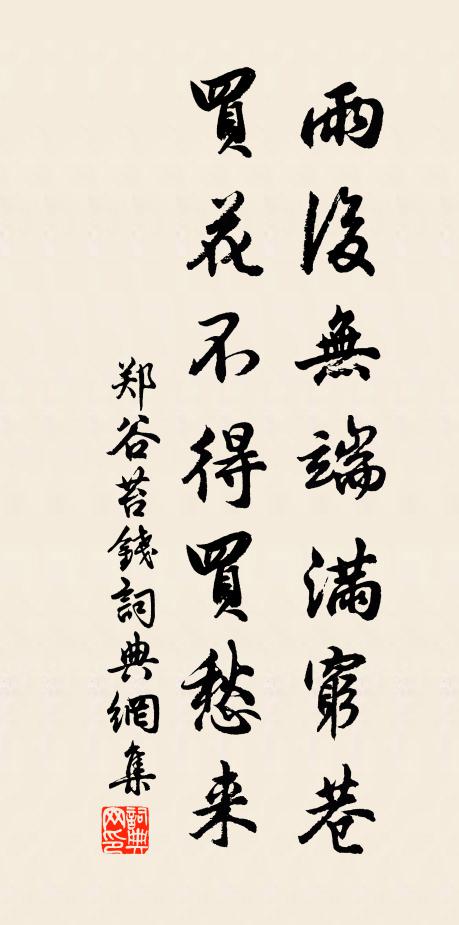 雨後無端滿窮巷
買花不得買愁来
郑谷苔錢詞典網集
詞典网印